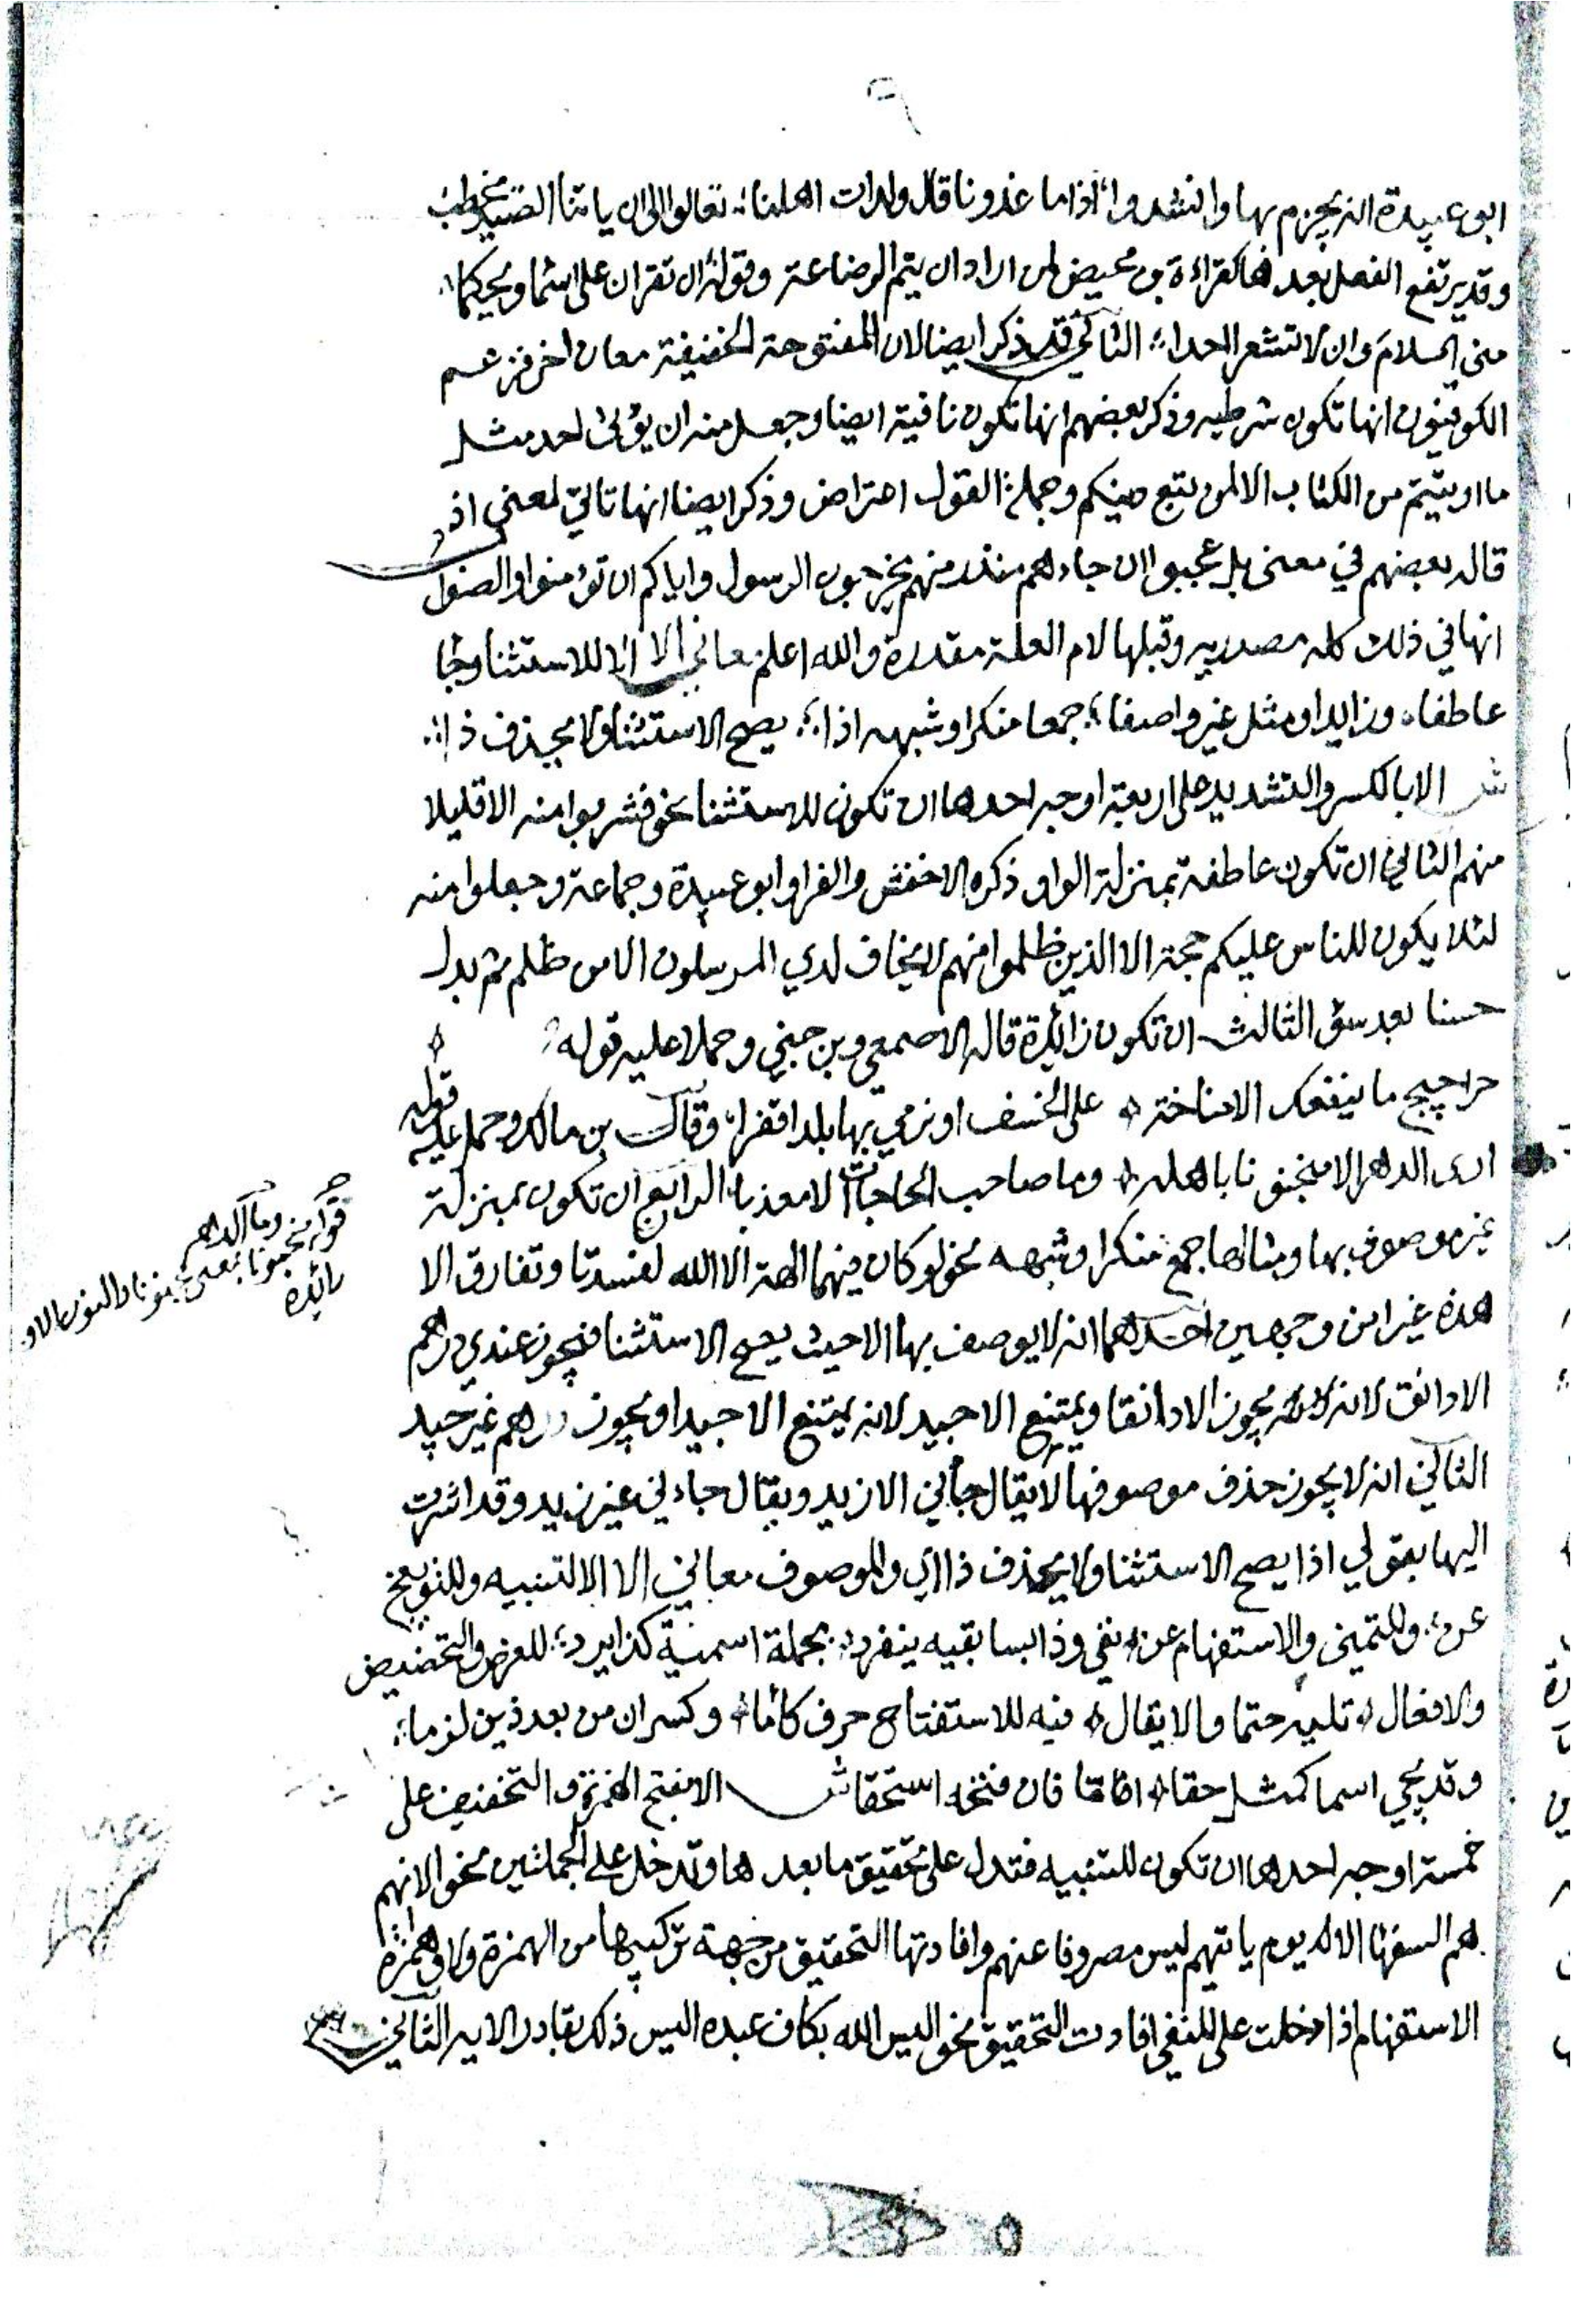 ابو عبيدة انه يجزم بها وانشدوا؛ اذا ما غدونا قال ولدات اهلنا؛ تعالوا الى ان ياتنا الصيد نحطب
وقد يرتفع الفعل بعدها كقراءة بن محيض لمن اراد ان يتم الرضاعة وقوله ان تقران على اسما ويحكما؛
مني السلام وان لا تشعرا احدا؛ الثاني قد ذكر ايضا لان المفتوحة الخفيفة معان اخر فزعم
الكوفيون انها تكون شرطيه وذكر بعضهم انها تكون نافية ايضا وجعل منه ان يؤتى احد مثل
ما اوتيتم من الكتاب الا لمن تبع دينكم وجملة القول اعتراض وذكر ايضا انها تاتي لمعنى اذ
قاله بعضهم في معنى بل عجبوا ان جاءهم منذر منهم يخرجون الرسول واياكم ان تؤمنوا والصواب
انها في ذلك كله مصدريه وقبلها لام العلة مقدرة والله اعلم معاني الا الا للاستثنا وجا
عاطفا وزايدا ومثل غير واصفا؛ جمعا منكرا وشبهه اذا؛ يصح الاستثنا ولا يحذف ذا؛
ش الا بالكسر والتشديد على اربعة اوجه احدها ان تكون للاستثنا نحو فشربوا منه الا قليلا
منهم الثاني ان تكون عاطفة بمنزلة الواو ذكره الاخفش والفرا وابو عبيدة وجماعة وجعلوا منه
لئلا يكون للناس عليكم حجة الا الذين ظلموا منهم لا يخاف لدي المرسلون الا من ظلم ثم بدل
حسنا بعد سؤ الثالث ان تكون زائدة قاله الاصمعي وبن جني وحملا عليه قوله
حراجيج ما ينفك الا مناخة على الخسف او نرمي بها بلدا قفرا؛ وقال بن مالك وحمل عليه قوله
ارى الدهر الا منجنونا باهله وما صاحب الحاجات الا معذبا؛ الرابع ان تكون بمنزلة
غير موصوف بها ومثالها جمع منكر او شبهه نحو لو كان فيهما الهة الا الله لفسدتا وتفارق الا
هذه غيرا من وجهين احدهما انه لا يوصف بها الا حيث يصح الاستثنا فيجوز عندي درهم
الا دانق لانه يجوز الا دانقا ويمتنع الا جيد لانه يمتنع الا جيدا ويجوز درهم غير جيد
الثاني انه لا يجوز حذف موصوفها لا يقال جاني الا زيد ويقال جاءني غير زيد وقد اشرت
اليها بقولي اذا يصح الاستثنا ولا يحذف ذا اي والموصوف معاني الا الا لتنبيه وللتوبيخ
عن؛ وللتمني والاستفهام عن نفي وذا بسابقيه ينفرد؛ بجملة اسمية كذا يرد؛ للعرض والتحضيض
والافعال تليه حتما والا يقال فيه للاستفتاح حرف كاما وكسر ان من بعد ذين لزما؛
وقد يجي اسما كمثل حقا اما فان فتحه استحقا ش الا بفتح الهمزة والتخفيف على
خمسة اوجه احدها ان تكون للتنبيه فتدل على تحقيق ما بعدها وتدخل على الجملتين نحو الا انهم
هم السفها الا يوم ياتيهم ليس مصروفا عنهم وافادتها التحقيق من جهة تركيبها من الهمزة ولا وهمزة
الاستفهام اذا دخلت على النفي افادت التحقيق نحو اليس الله بكاف عبده اليس ذلك بقادر الايه الثاني
وما الدهر
قوله منجنونا بمعنى
زائدة